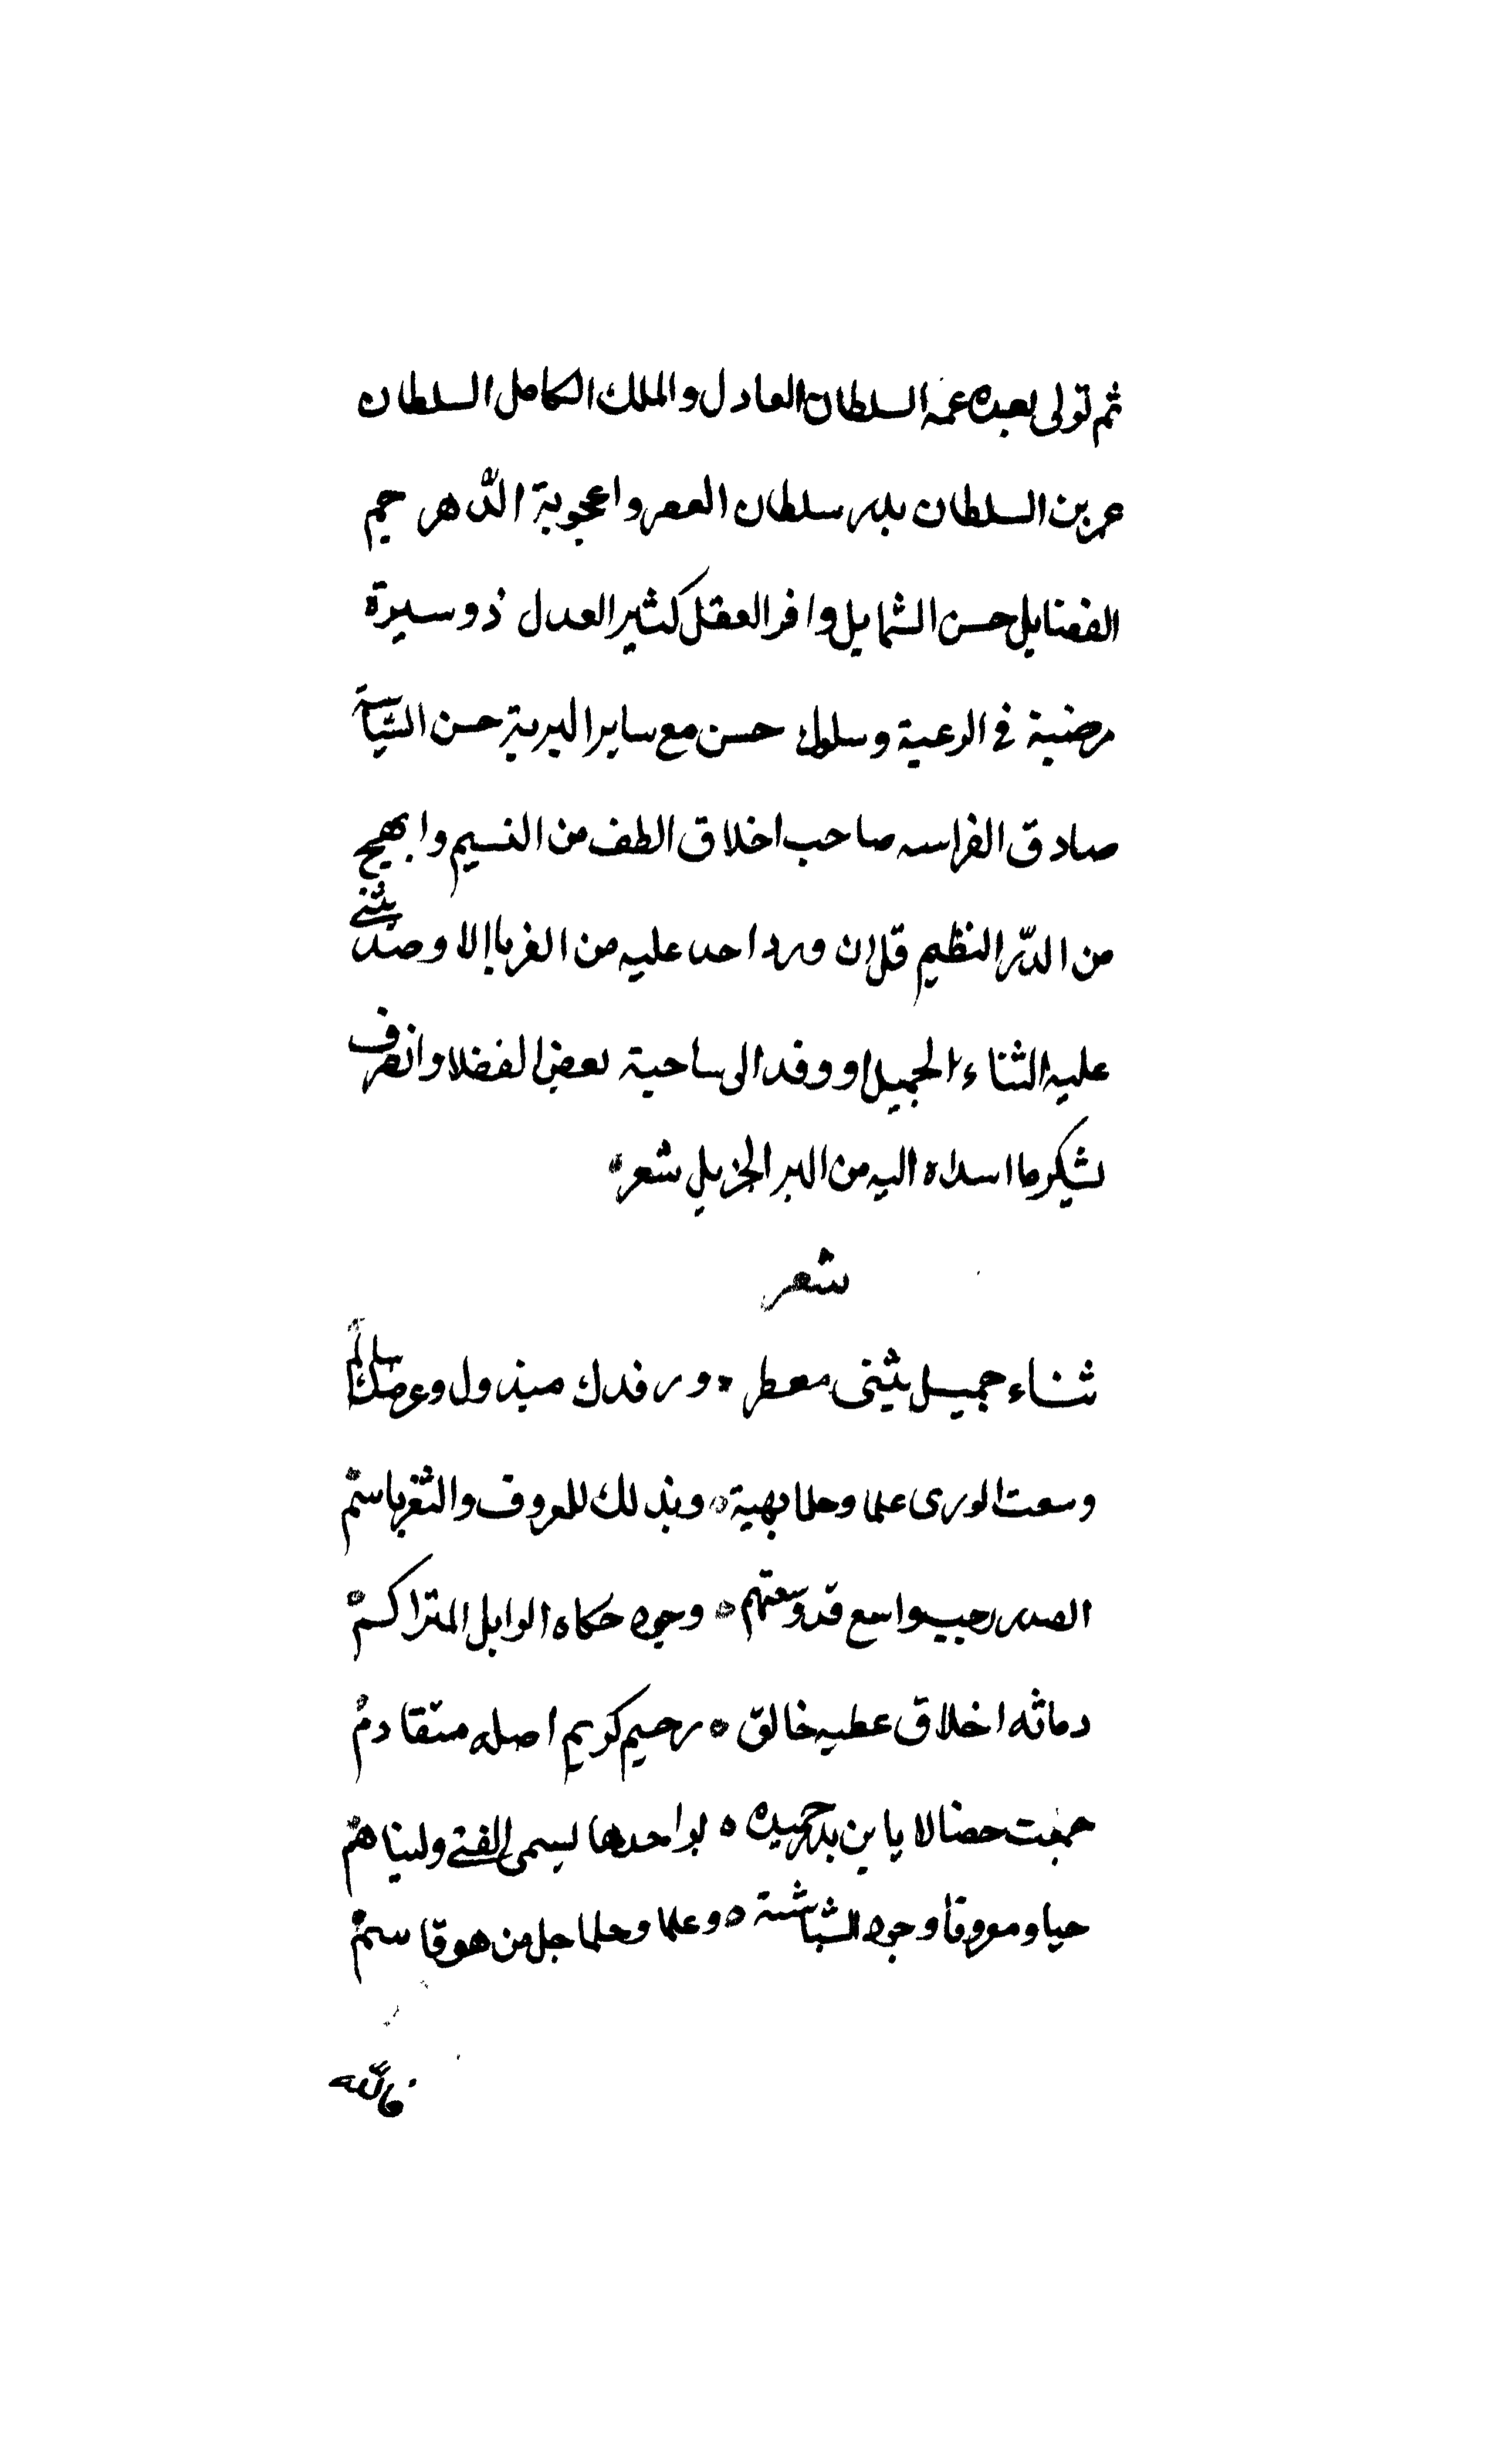 ثم تولى بعده عمه السلطان العادل والملك الكامل السلطان
عمر بن السلطان بدر سلطان العصر واعجوبة الدّهر جم
الفضايل حسن الشمايل وافر العقل كثير العدل ذو سيرة
مرضية في الرعية وسلوك حسن مع ساير البرية حسن السّياسة
صادق الفراسه صاحب اخلاق الطف من النسيم وابهج
من الدّر النظيم قل ان ورد احد عليه من الغربا إلا وصدر يثني
عليه الثناء الجميل او وفد الى ساحية بعض الفضلا وانصرف
لشكر ما اسداه اليه من البر الجزيل شعر
شعر
ثناء جميل يثنى معطر ه ورفدك مبذول وعرضك سالمٌ
وسعت الورى علما وحلما بهية ه وبذلك للمعروف والثغر باسمٌ
الصدر رحيب واسع قد وسعتهم ه وجود حكاه الوابل المتراكمْ
دماثه اخلاق عطيه خالق ه رحيم كريم اصله متقادمْ
جمعت خصالا يا بن بدر حميده ه بواحدها يسمى الفتى ولينا همْ
حيا ومعروفا وجود البشاشة ه وعلما وحلما جل من هو قاسمْ
فالله